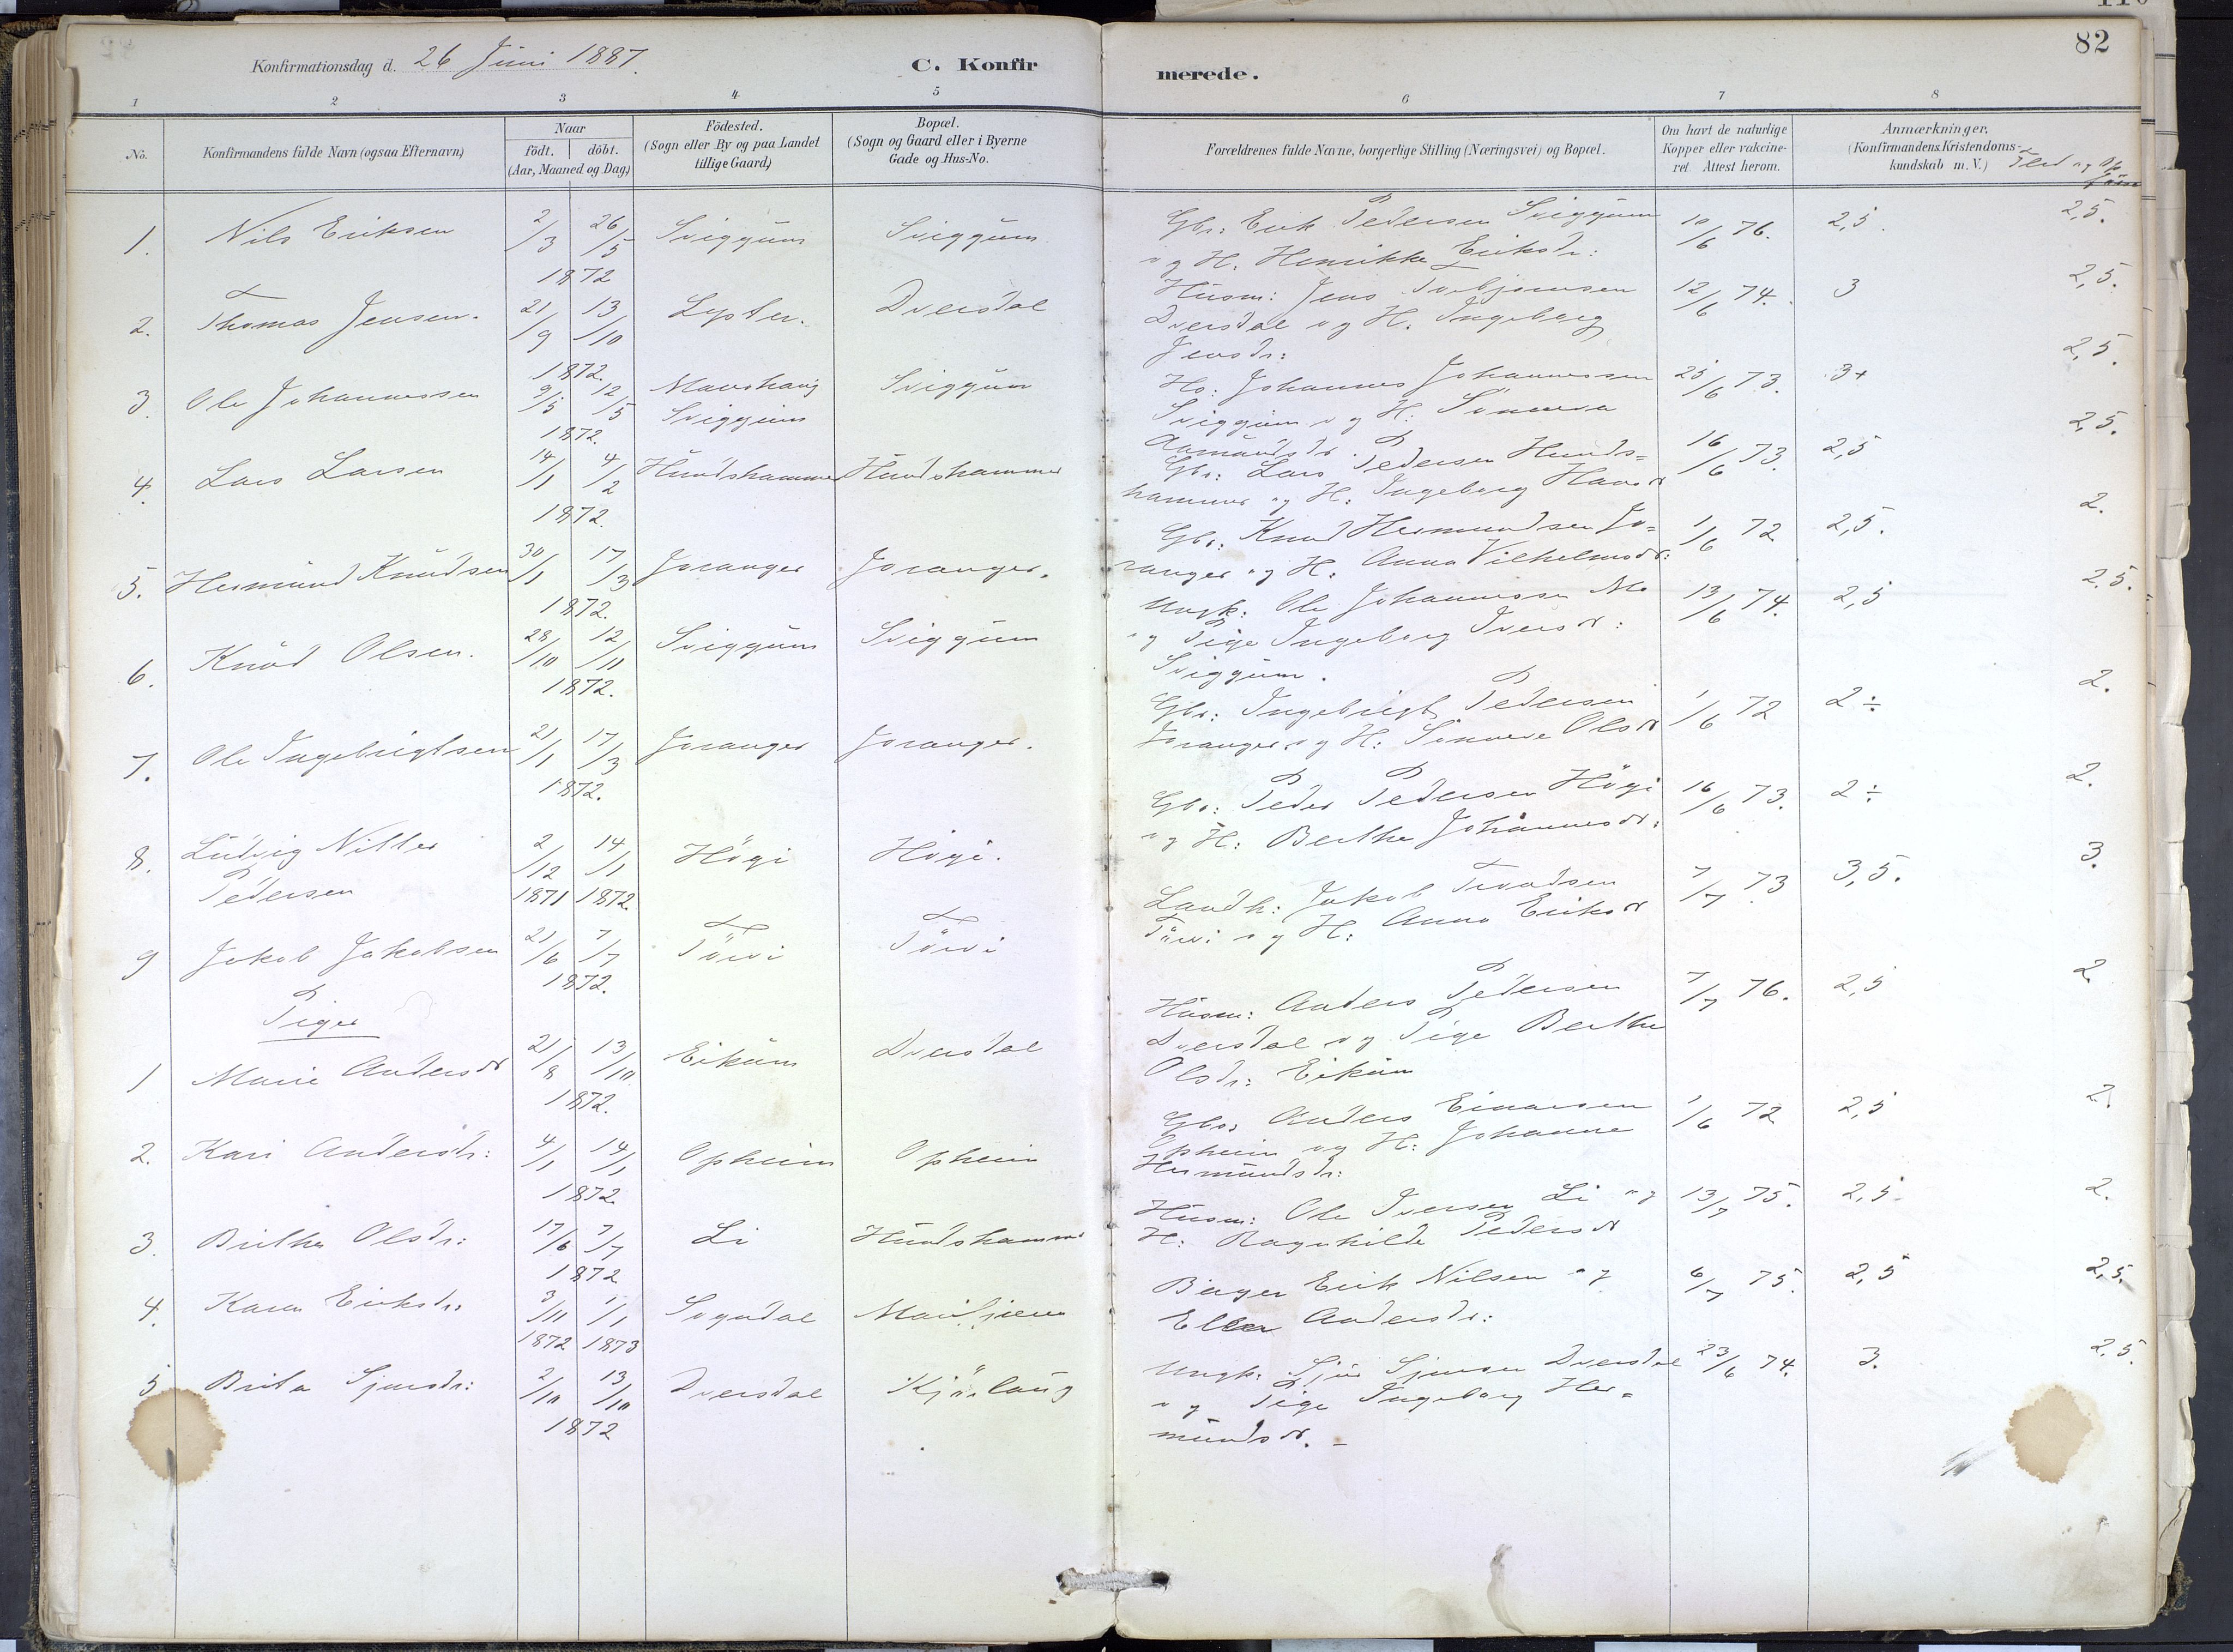 82
Konfirmationsdag d. 26 Juni 1887.
C. Konfir merede.
1 2 3 4 5 6 7 8
No.
Konfirmandens fulde Navn (ogsaa Efternavn)
Naar
födt. döbt.
(Aar, Maaned og Dag)
Födested.
(Sogn eller By og paa Landet
tillige Gaard)
Bopæl.
(Sogn og Gaard eller i Byerne
Gade og Hus-No.
Forældrenes fulde Navne, borgerlige Stilling (Næringsvei) og Bopæl.
Om havt de naturlige
Kopper eller vakcine-
ret Attest herom.
Anmærkninger.
(Konfirmandens Kristendoms-
kundskab m. V.)
Flid og
1. Nils Eriksen 2/3 26/5 1872 Sviggum Sviggum
Gbr: Erik Pedersen Sviggum
og H. Henrikke Eriksdr:
10/6 76. 2,5. 2,5.
2. Thomas Jensen. 21/9 13/10 1872. Lyster. Dversdal
Husm: Jens Torbjørnsen
Dversdal og H. Ingeborg
Jensdr:
12/6 74. 3 2,5.
3. Ole Johannessen 9/5 12/5 1872. Sviggum Sviggum
Hs: Johannes Johannessen
Sviggum og H:
Aamundsdr.
25/6 73. 3+ 2,5.
4. Lars Larsen 14/1 4/2 1872. Hundshammer Hundshammer
Gbr: Lars Pedersen Hunds=
hammer og H: Ingeborg
16/6 73. 2,5 2,5.
5. Hermund Knudsen 30/1 17/3 1872. Joranger Joranger.
Gbr: Knud Hermundsen Jo=
ranger og H: Anna Vilhelmsdr:
1/6 72 2,5. 2.
6. Knud Olsen. 28/10 12/11 1872. Sviggum Sviggum
Ungk: Ole Johannessen Mo
og Pige Ingeborg Iversdr:
Sviggum.
13/6 74. 2,5 2.5.
7. Ole Ingebrigtsen 21/1 17/3 1872. Joranger Joranger.
Gbr: Ingebrigt Pedersen
Joranger og H: Olsdr
1/6 72 2÷ 2.
8. Ludvig Nitter
Pedersen 2/12 1871 14/1 1872. Högi Högi.
Gbr: Peder Pedersen Högi
og H: Berthe Johannesdr:
16/6 73. 2÷ 2.
9 Jakob Jakobsen 21/6 7/7 1872.
Landh: Jakob
og H: Anna Eriksdr
7/7 73 3,5. 3.
Piger
1 Marie Andersdr 21/8 13/10 1872. Eikum Dversdal
Husm: Anders Pedersen
Dversdal og Pige Berthe
Olsdr: Eikum
7/7 76. 2,5 2
2. Kari Andersdr: 4/1 14/1 1872. Opheim Opheim
Gbr: Anders Einarsen
Opheim og H: Johanne
Hermundsdr:
1/6 72 2,5 2.
3. Brithe Olsdr: 17/6 7/7 1872 Li Hundshammer
Husm: Ole Iversen Li og
H: Ragnhilde Pedersdr
13/7 75. 2,5. 2.
4. Karen Eriksdr: 3/11 1872 1/1 1873 Sogndal
Bager Erik Nilsen og
Ellen Andersdr:
6/7 75. 2,5 2,5.
5 Brita Sjursdr: 2/10 13/10 1872 Dversdal Kjörlaug
Ungk: Sjur Sjursen Dversdal
og Pige Ingeborg Her=
mundsdr.
23/6 74. 3. 2.5.